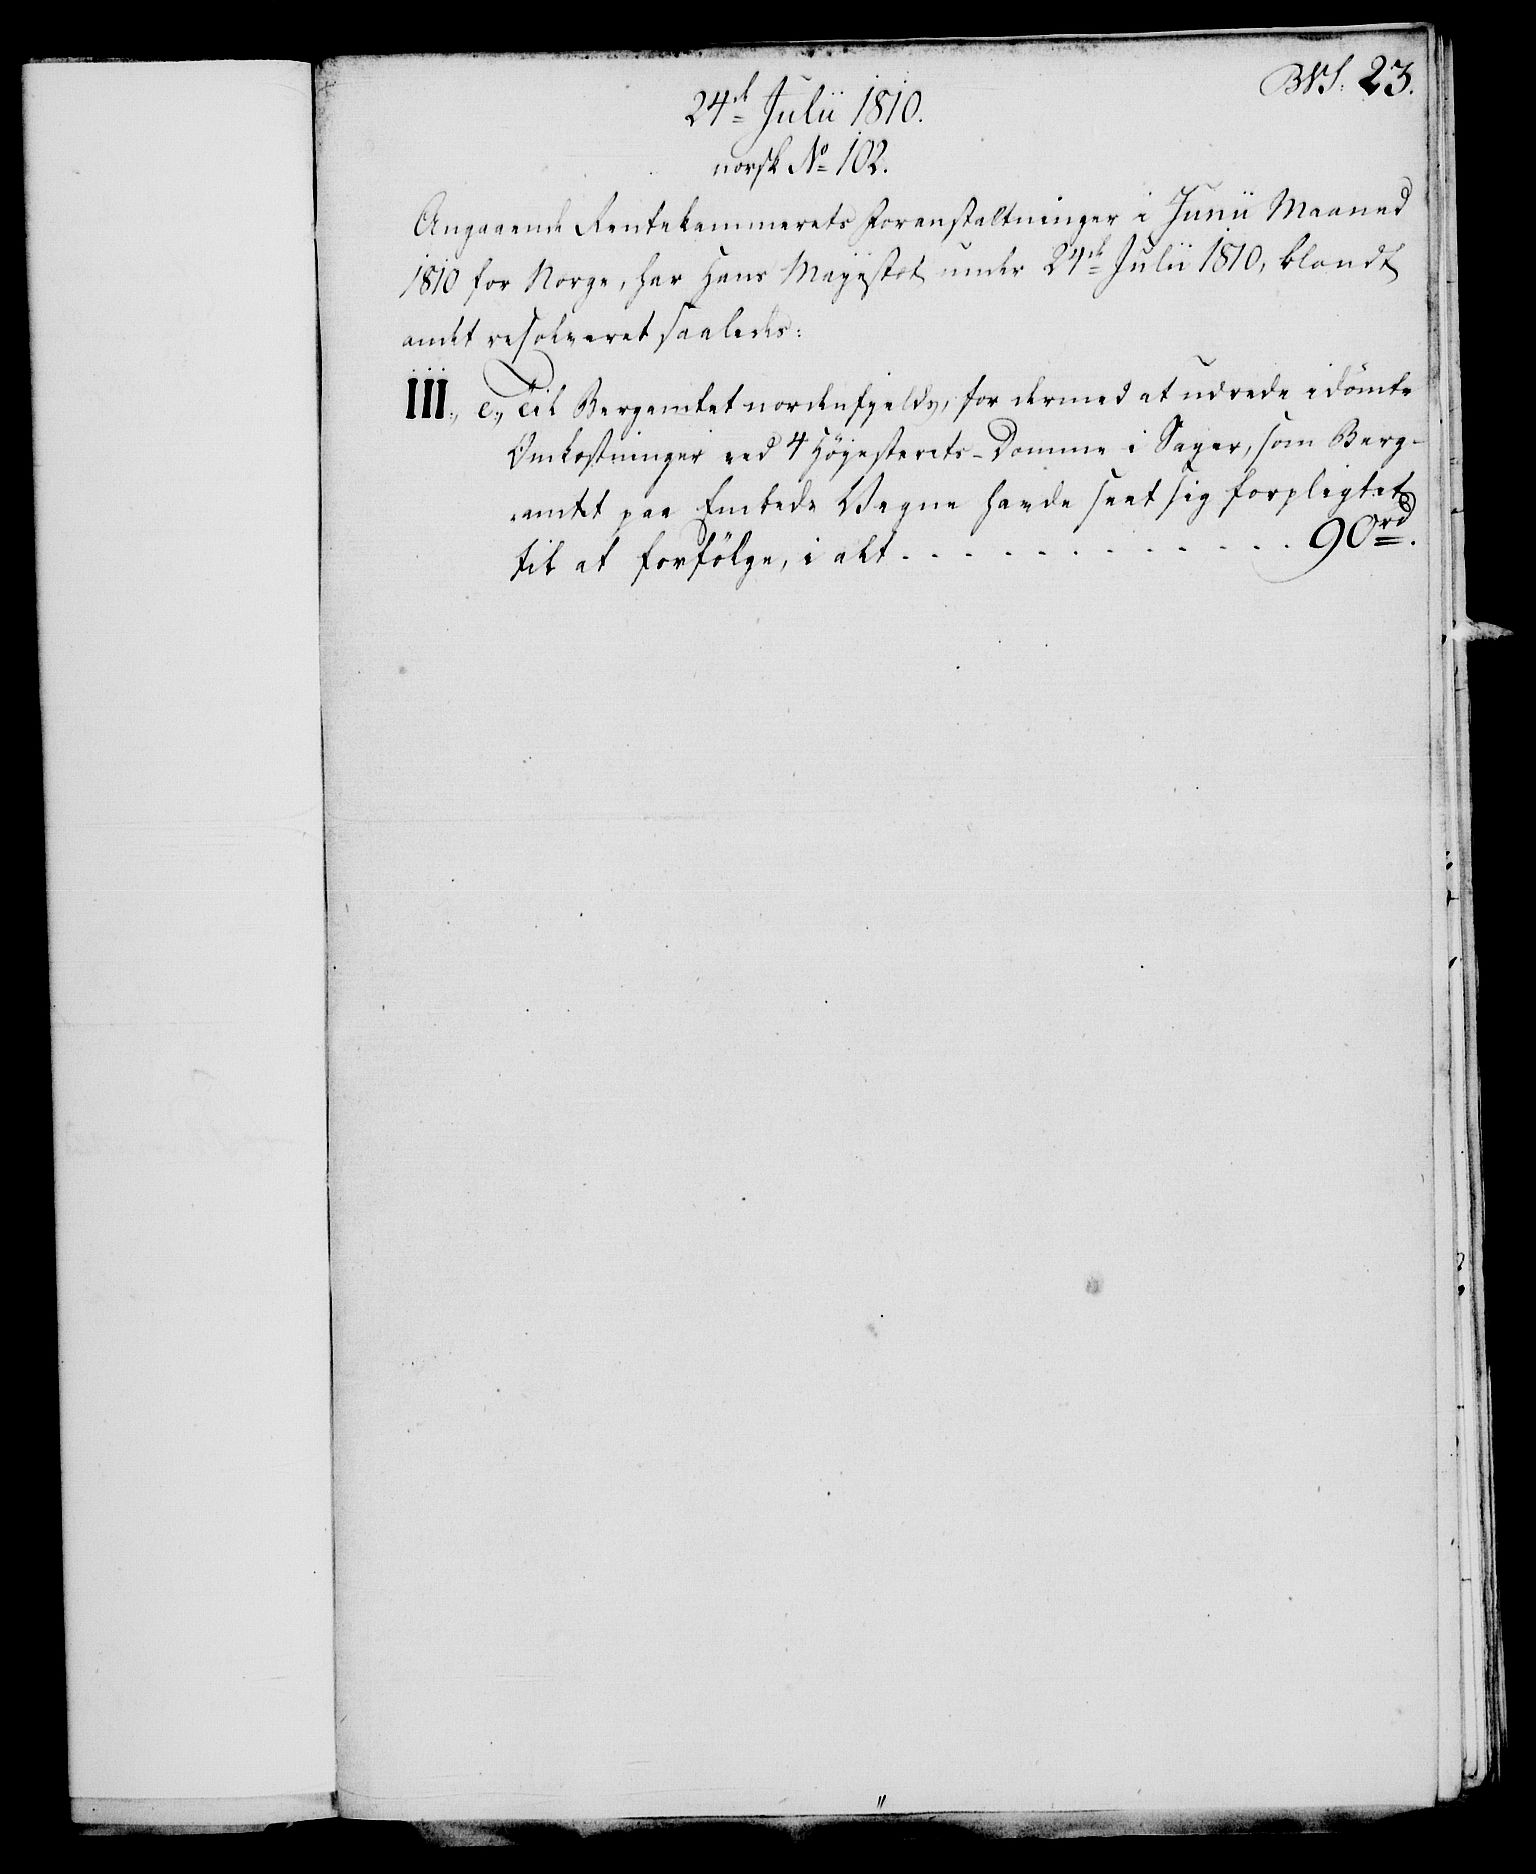 BVS: 23.
24de Julii 1810.
norsk No 102.
Angaaende Rentekammerets Foranstaltninger i Junii Maaned
1810 for Norge, har Hans Majestæt under 24de Julii 1810, blandt
andet resolveret saaledes:
III., c., Til Bergamtet nordenfjelds, for dermed at udrede idömte
Omkostninger ved 4 Höjesterets-Domme i Sager, som Berg-
amtet paa Embeds Vegne havde seet sig forpligtet
til at forfölge, i alt . . . . . . . . . . . . 90 rd.